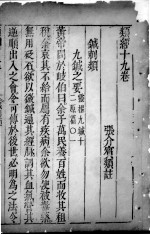 類經十九卷
張介賓類註
鍼刺類
九鍼之要 靈樞九鍼十
二原○一
黃帝問於岐伯曰余子萬民養百姓而收其租
稅余哀其不給而屬有疾病余欲勿使被毒藥
無用砭石欲以微鍼通其經脈調其血氣營其
逆順出入之會令可傳於後世必明為之法令